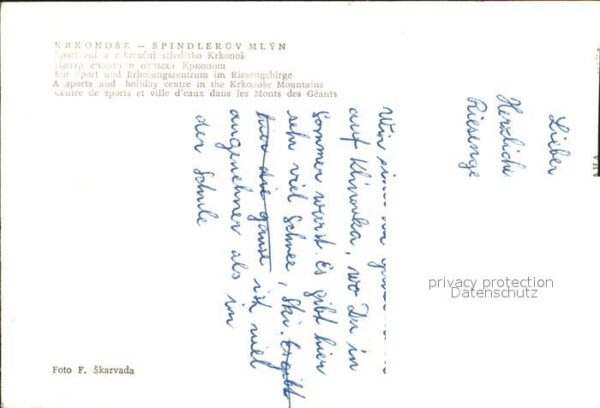 KRKONOŠE – ŠPINDLERŮV MLÝN
Sportovní a rekreační středisko Krkonoš
Центр спорта и отдыха Крконош
Ein Sport und Erholungszentrum im Riesengebirge
A sports and holiday centre in the Krkonoše Mountains
Centre de sports et ville d'eaux dans les Monts des Géants
Lieber
Herzliche
Riesenge
Wir
auf Klínovka, wo Du im
Sommer warst. Es gibt hier
sehr viel Schnee, Ski. Es gibt
die ganze ist viel
angenehmer als in
der Schule
privacy protection
Datenschutz
Foto F. Škarvada